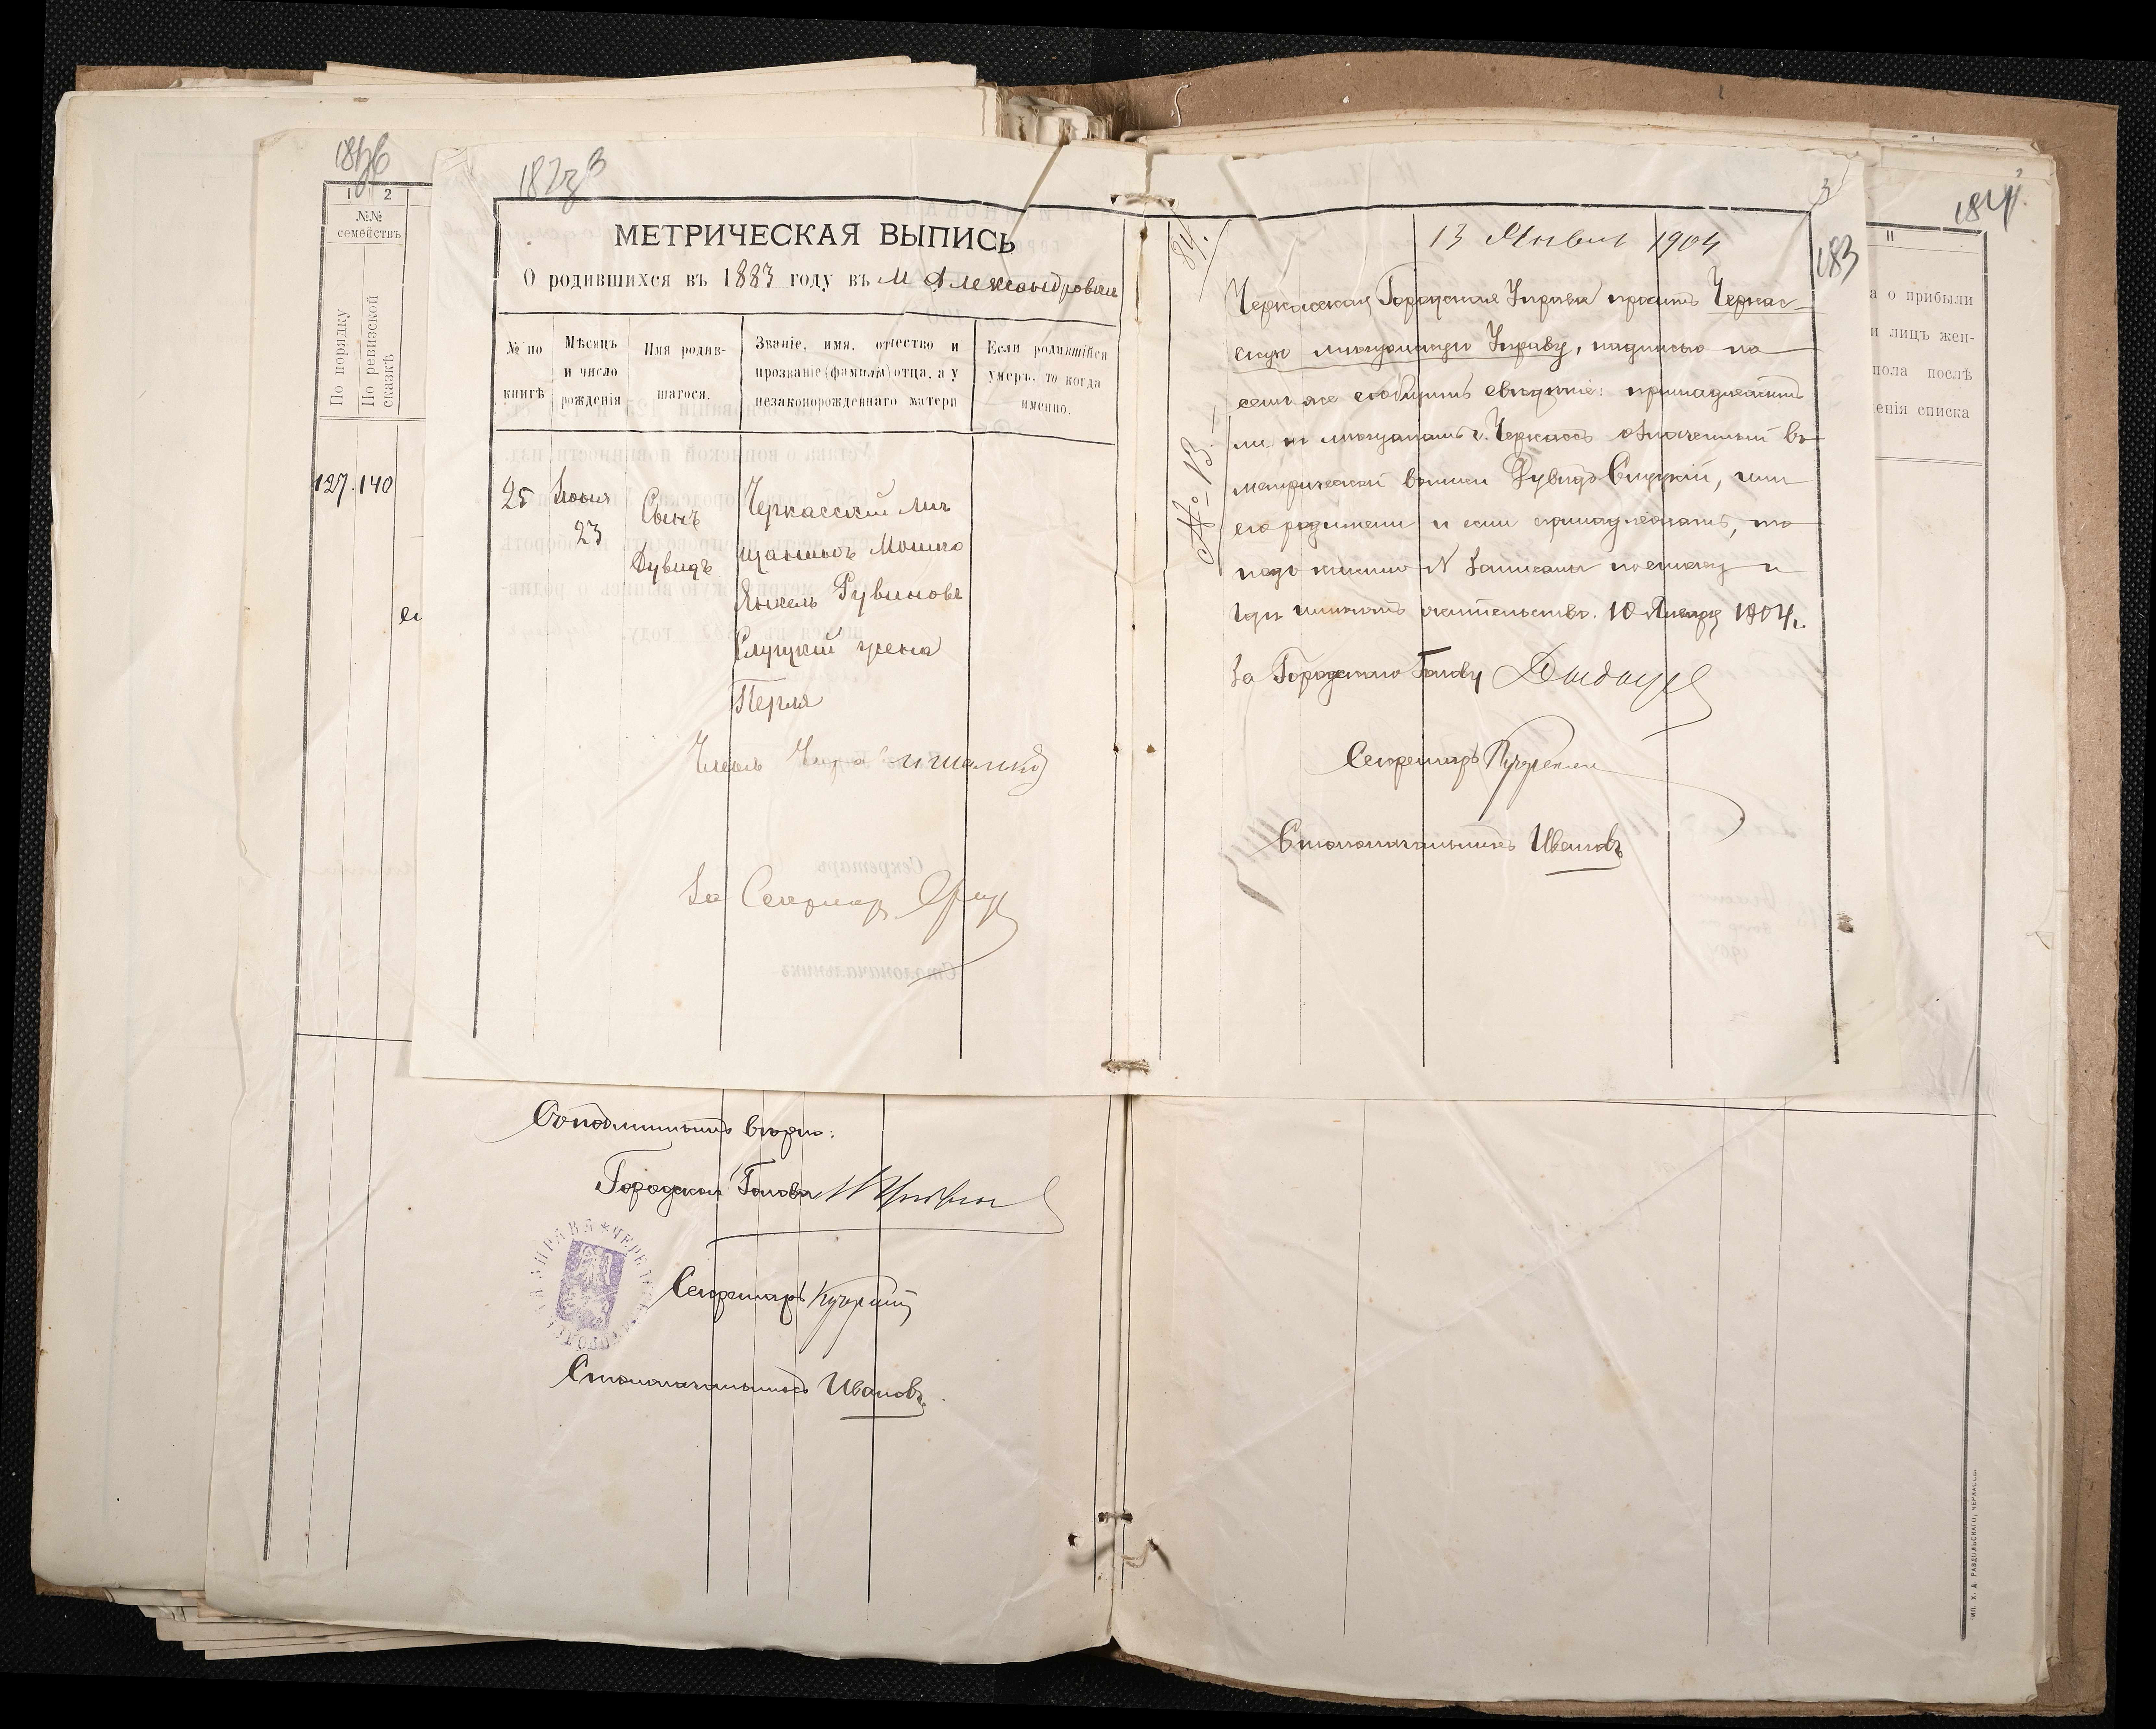 1 2
№№
семействъ
По порядку
По ревизской
сказкѣ
127. 140
МЕТРИЧЕСКАЯ ВЫПИСЬ
О родившихся въ 1883 году въ м Александровкѣ
№ по
книгѣ
Мѣсяцъ
и число
рожденія
Имя родив-
шагося.
Званіе, имя, отчество и
прозваніе (фамилія) отца, а у
незаконорожденнаго матери
Если родившійся
умеръ, то когда
именно.
25
Іюня
23
Сынъ
Дувидъ
Черкасскій мѣ
щанинъ Мошко
Янкель Рувиновъ
Слуцкій жена
Перля
Членъ
За Секретар.
Съ подлиннымъ вѣрно:
Городской Голова
Секретарь
Столоначальникъ Ивановъ
84.
№ 13.
13 Января 1904
183
Черкасская Городская Управа проситъ Черкас-
скую мѣщанскую Управу, надписью на
семъ же сообщить свѣдѣніе: принадлежитъ
ли къ мѣщанамъ г. Черкассъ означенный въ
метрической выписи Дувидъ Слуцкій, или
его родители и если принадлежатъ, то
подъ какимъ № записаны по списку и
гдѣ имѣютъ жительство. 10 Января 1904 г.
За Городского Голову
Секретарь
Столоначальникъ Ивановъ
11
а о прибыли
и лицъ жен-
пола послѣ
енія списка
ТИП. Х. А. РАВДОЛЬСКАГО, ЧЕРКАССЫ